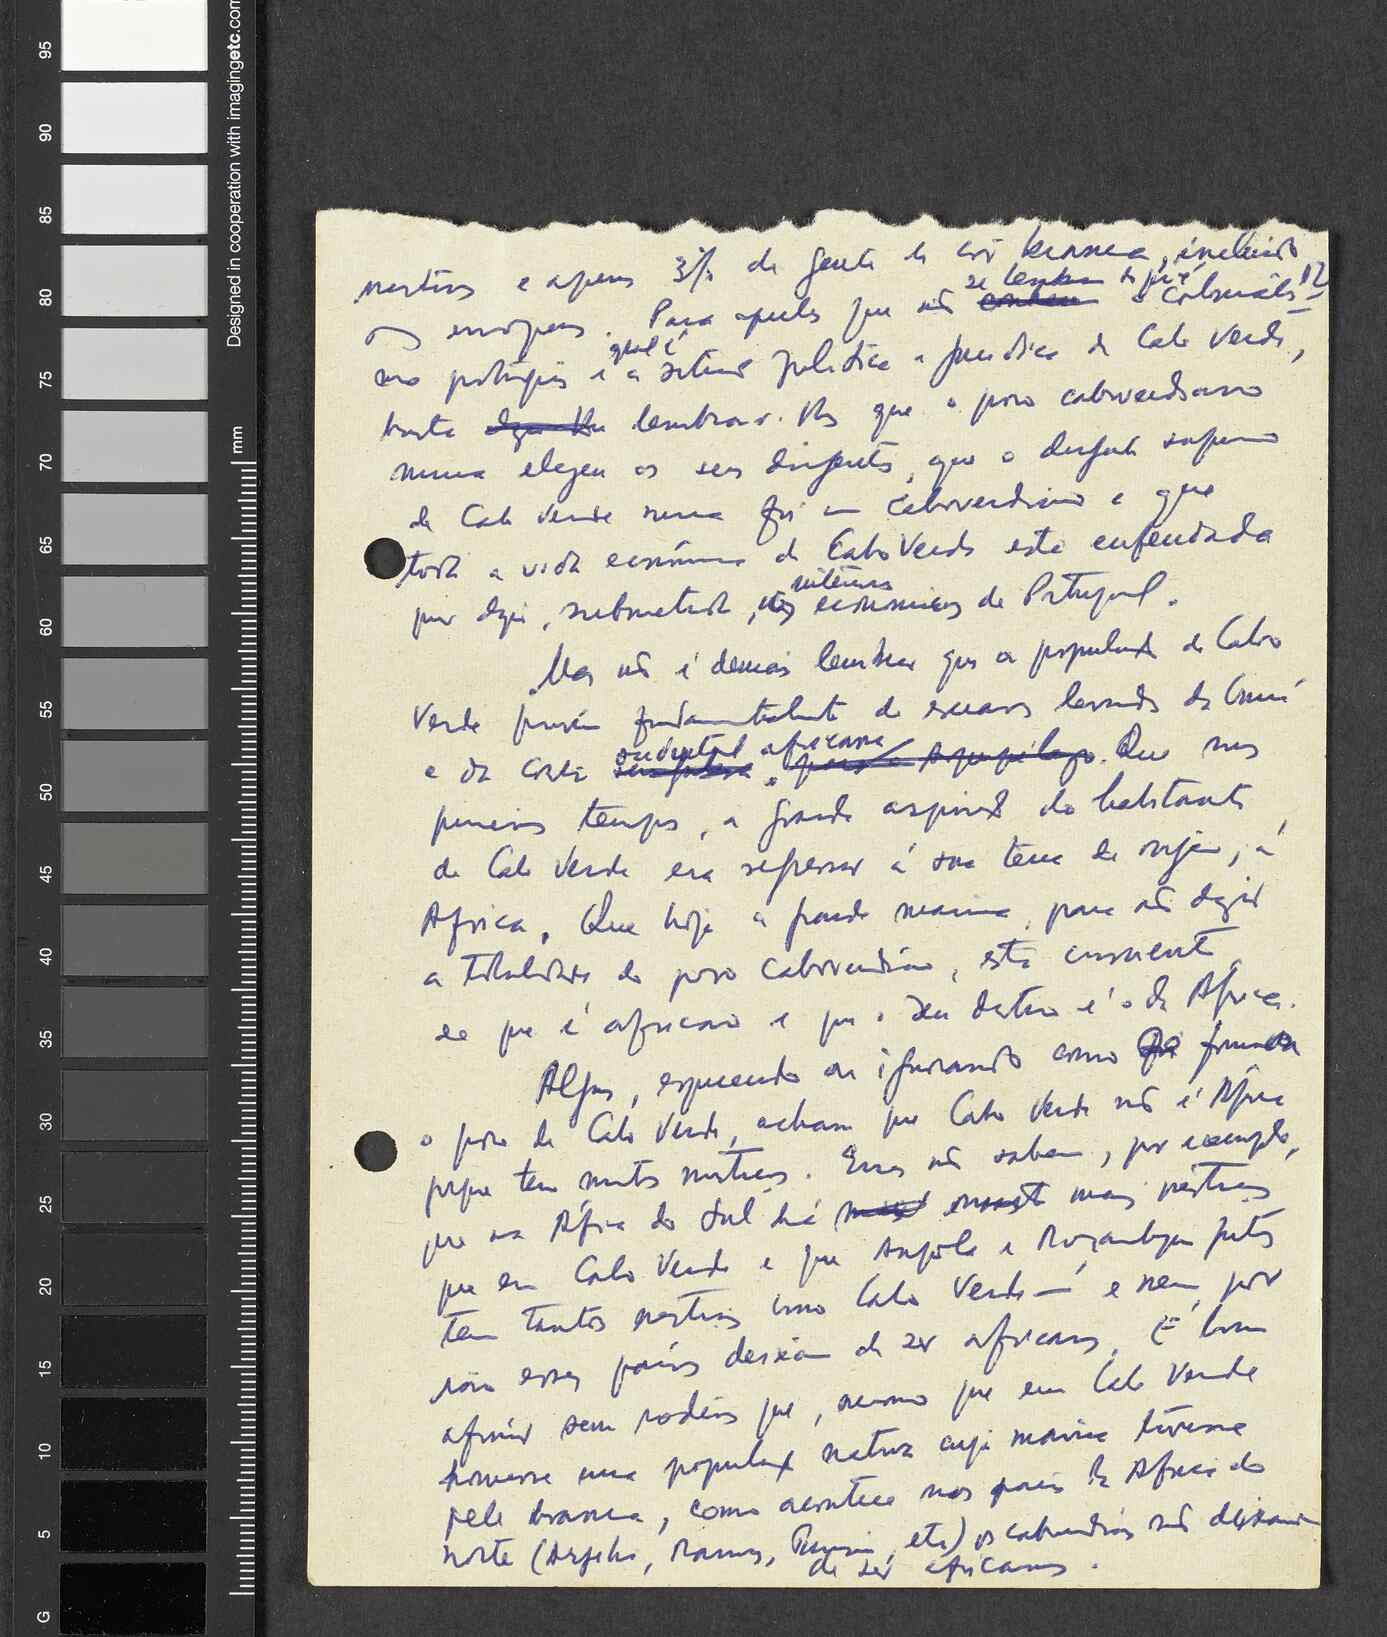 95
90
85
80
75
70
65
60
55
50
45
40
35
30
25
20
15
10
5
G
Designed in cooperation with imagingetc.com
mm
mestiços e apenas 3% de gente de cor branca, incluindo
os europeus. Para aqueles que não se lembram do que é o colonialis-
mo português e qual é a situação política e jurídica de Cabo Verde,
basta lembrar. que o povo caboverdiano
nunca elegeu os seus dirigentes, que o dirigente supremo
de Cabo Verde nunca foi um caboverdiano e que
toda a vida económica de Cabo Verde está enfeudada
por submetida, interesses económicos de Portugal.
Mas não é demais lembrar que a população de Cabo
Verde provém fundamentalmente de escravos levados da Guiné
e da Costa ocidental africana. Que nos
primeiros tempos, a grande aspiração do habitante
de Cabo Verde era regressar à sua terra de origem, à
Africa. Que hoje a grande maioria, para não dizer
a totalidade do povo caboverdiano, está consciente
de que é africano e que o seu destino é o da África.
Alguns, esquecendo ou ignorando como foi formado
o povo de Cabo Verde, acham que Cabo Verde não é África
porque tem muitos mestiços. Esses não sabem, por exemplo,
que na África do Sul há mais mestiços
que em Cabo Verde e que Angola e Moçambique juntos
tem tantos mestiços como Cabo Verde — e nem por
isso esses países deixam de ser africanos. É bom
afirmar sem rodeios que, mesmo que em Cabo Verde
houvesse uma população nativa cuja maioria tivesse
pele branca, como acontece nos países da Africa do
norte (Argélia, Marrocos, Tunísia, etc) os caboverdianos não deixariam
de ser africanos.